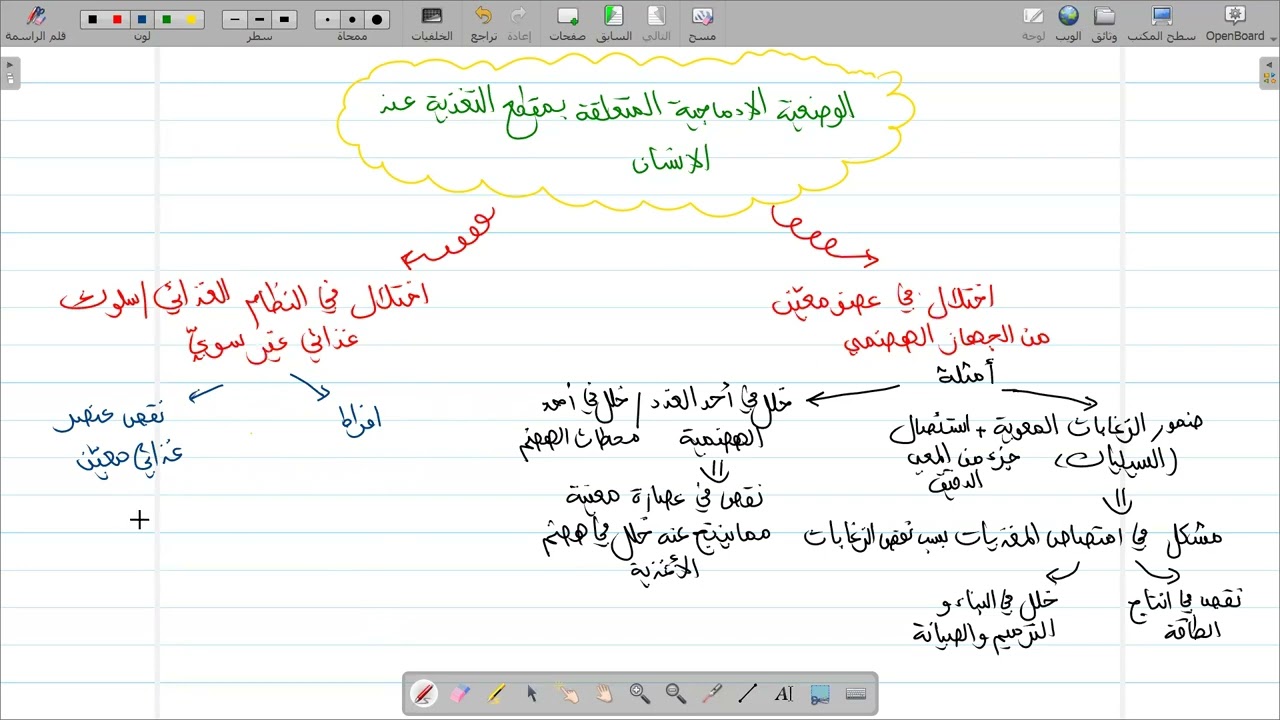 OpenBoard
سطح المكتب
وثائق
الويب
لوحة
مسح
التالي
السابق
صفحات
إعادة
تراجع
الخلفيات
ممحاة
سطر
لون
قلم الراسمة
الوضعية الادماجية المتعلقة بمقطع التغذية عند
الانسان
اختلال في عضو معيّن
من الجهاز الهضمي
أمثلة
ضمور الزغابات المعوية + استئصال
(السيلياك)
جزء من المعي
الدقيق
⇓
مشكل في امتصاص المغذيات بسبب نقص الزغابات
نقص في انتاج
الطاقة
خلل في البناء و
الترميم والصيانة
خلل في أحد الغدد / خلل في أحد
الهضمية
محطات الهضم
⇓
نقص في عصارة معينة
مما ينتج عنه خلل في هضم
الأغذية
اختلال في النظام الغذائي / سلوك
غذائي غير سويّ
افراط
نقص عنصر
غذائي معيّن
AI